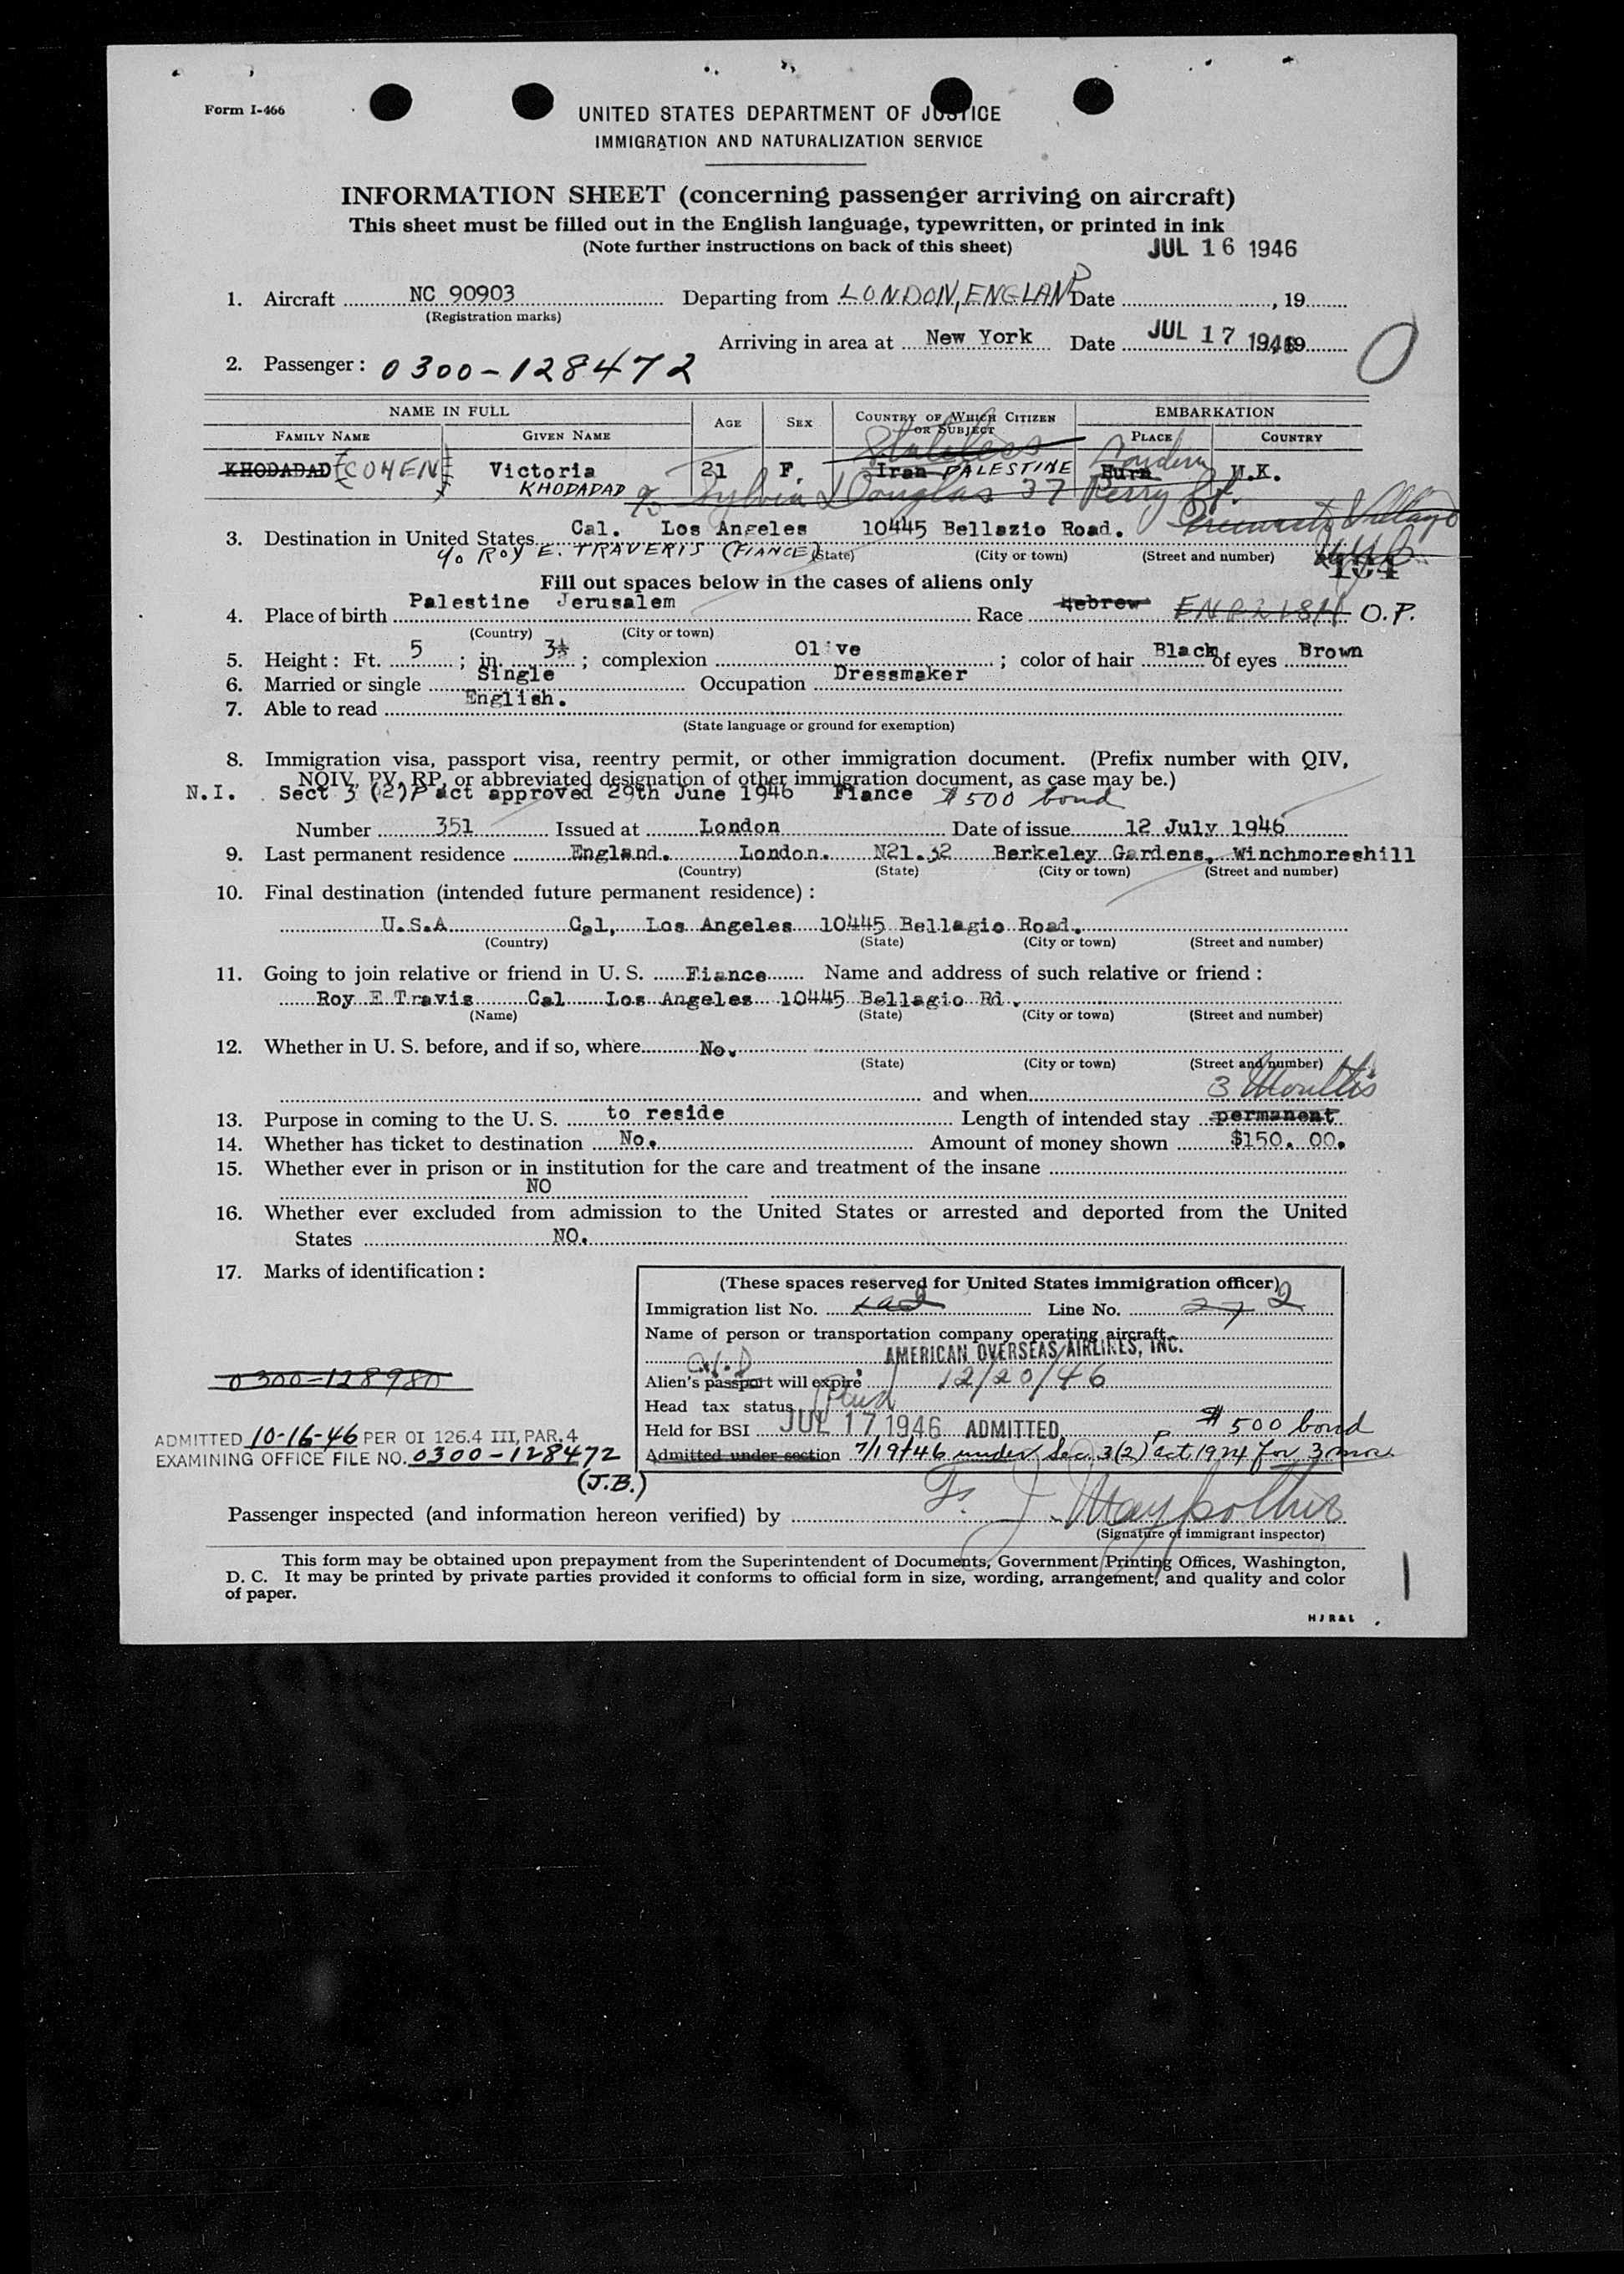 Form I-466
UNITED STATES DEPARTMENT OF JUSTICE
IMMIGRATION AND NATURALIZATION SERVICE
INFORMATION SHEET (concerning passenger arriving on aircraft)
This sheet must be filled out in the English language, typewritten, or printed in ink
(Note further instructions on back of this sheet)
JUL 16 1946
1. Aircraft NC 90903 Departing from LONDON, ENGLAND Date , 19
(Registration marks)
Arriving in area at New York Date JUL 17 1946 19
O
2. Passenger: 0300-128472
NAME IN FULL AGE SEX COUNTRY OF WHICH CITIZEN OR SUBJECT EMBARKATION
FAMILY NAME GIVEN NAME PLACE COUNTRY
Stateless London
KHODADAD COHEN Victoria 21 F. Iran PALESTINE Hurn U.K.
KHODADAD
c/o Sylvia L Douglas 37 Perry St.
Greenwich Village
3. Destination in United States Cal. Los Angeles 10445 Bellazio Road.
c/o ROY E. TRAVERIS (FIANCE) (State) (City or town) (Street and number)
Fill out spaces below in the cases of aliens only
4. Place of birth Palestine Jerusalem Race Hebrew ENGLISH O.P.
(Country) (City or town)
5. Height: Ft. 5 ; in. 3½ ; complexion Olive ; color of hair Black of eyes Brown
6. Married or single Single Occupation Dressmaker
7. Able to read English.
(State language or ground for exemption)
8. Immigration visa, passport visa, reentry permit, or other immigration document. (Prefix number with QIV,
NQIV, PV, RP, or abbreviated designation of other immigration document, as case may be.)
N.I. Sect 3 (2)P act approved 29th June 1946 Fiance $500 bond
Number 351 Issued at London Date of issue 12 July 1946
9. Last permanent residence England. London. N21.32 Berkeley Gardens, Winchmoreshill
(Country) (State) (City or town) (Street and number)
10. Final destination (intended future permanent residence):
U.S.A Cal, Los Angeles 10445 Bellagio Road.
(Country) (State) (City or town) (Street and number)
11. Going to join relative or friend in U. S. Fiance Name and address of such relative or friend:
Roy E Travis Cal Los Angeles 10445 Bellagio Rd.
(Name) (State) (City or town) (Street and number)
12. Whether in U. S. before, and if so, where No.
(State) (City or town) (Street and number)
and when
3 Months
13. Purpose in coming to the U. S. to reside Length of intended stay permanent
14. Whether has ticket to destination No. Amount of money shown $150. 00.
15. Whether ever in prison or in institution for the care and treatment of the insane
NO
16. Whether ever excluded from admission to the United States or arrested and deported from the United
States NO.
17. Marks of identification:
(These spaces reserved for United States immigration officer)
Immigration list No. Line No. 2
Name of person or transportation company operating aircraft
AMERICAN OVERSEAS AIRLINES, INC.
Alien's passport will expire 12/20/46
Head tax status Paid
Held for BSI JUL 17 1946 ADMITTED $500 bond
Admitted under section 7/19/46 under Sec. 3(2) act 1924 for 3 mos
0300-128980
ADMITTED 10-16-46 PER OI 126.4 III, PAR. 4
EXAMINING OFFICE FILE NO. 0300-128472
(J.B.)
Passenger inspected (and information hereon verified) by
(Signature of immigrant inspector)
This form may be obtained upon prepayment from the Superintendent of Documents, Government Printing Offices, Washington,
D. C. It may be printed by private parties provided it conforms to official form in size, wording, arrangement, and quality and color
of paper.
HJR&L